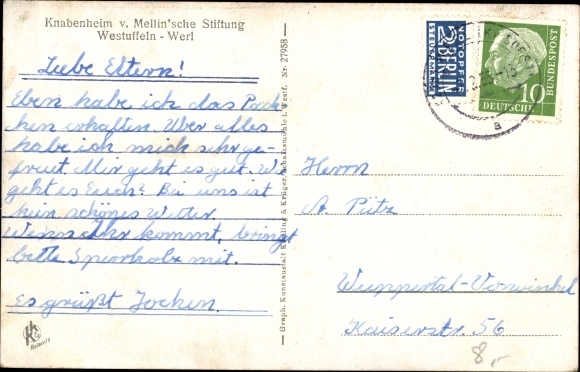 Knabenheim v. Mellin'sche Stiftung
Westuffeln - Werl
Liebe Eltern!
Eben habe ich das Päck-
chen erhalten. Über alles
habe ich mich sehr ge-
freut. Mir geht es gut. Wie
geht es Euch? Bei uns ist
kein schönes Wetter.
Wenn Ihr kommt, bringt
bitte Sporthose mit.
Es grüßt Jochen.
Graph. Kunstanstalt & Krüger, i. Westf. Nr. 27958
NOTOPFER
2 BERLIN
STEUERMARKE
DEUTSCHE BUNDESPOST
10
a
Herrn
A. Pütz
Wuppertal-Vorwinkel
Kaiserstr. 56
8,-